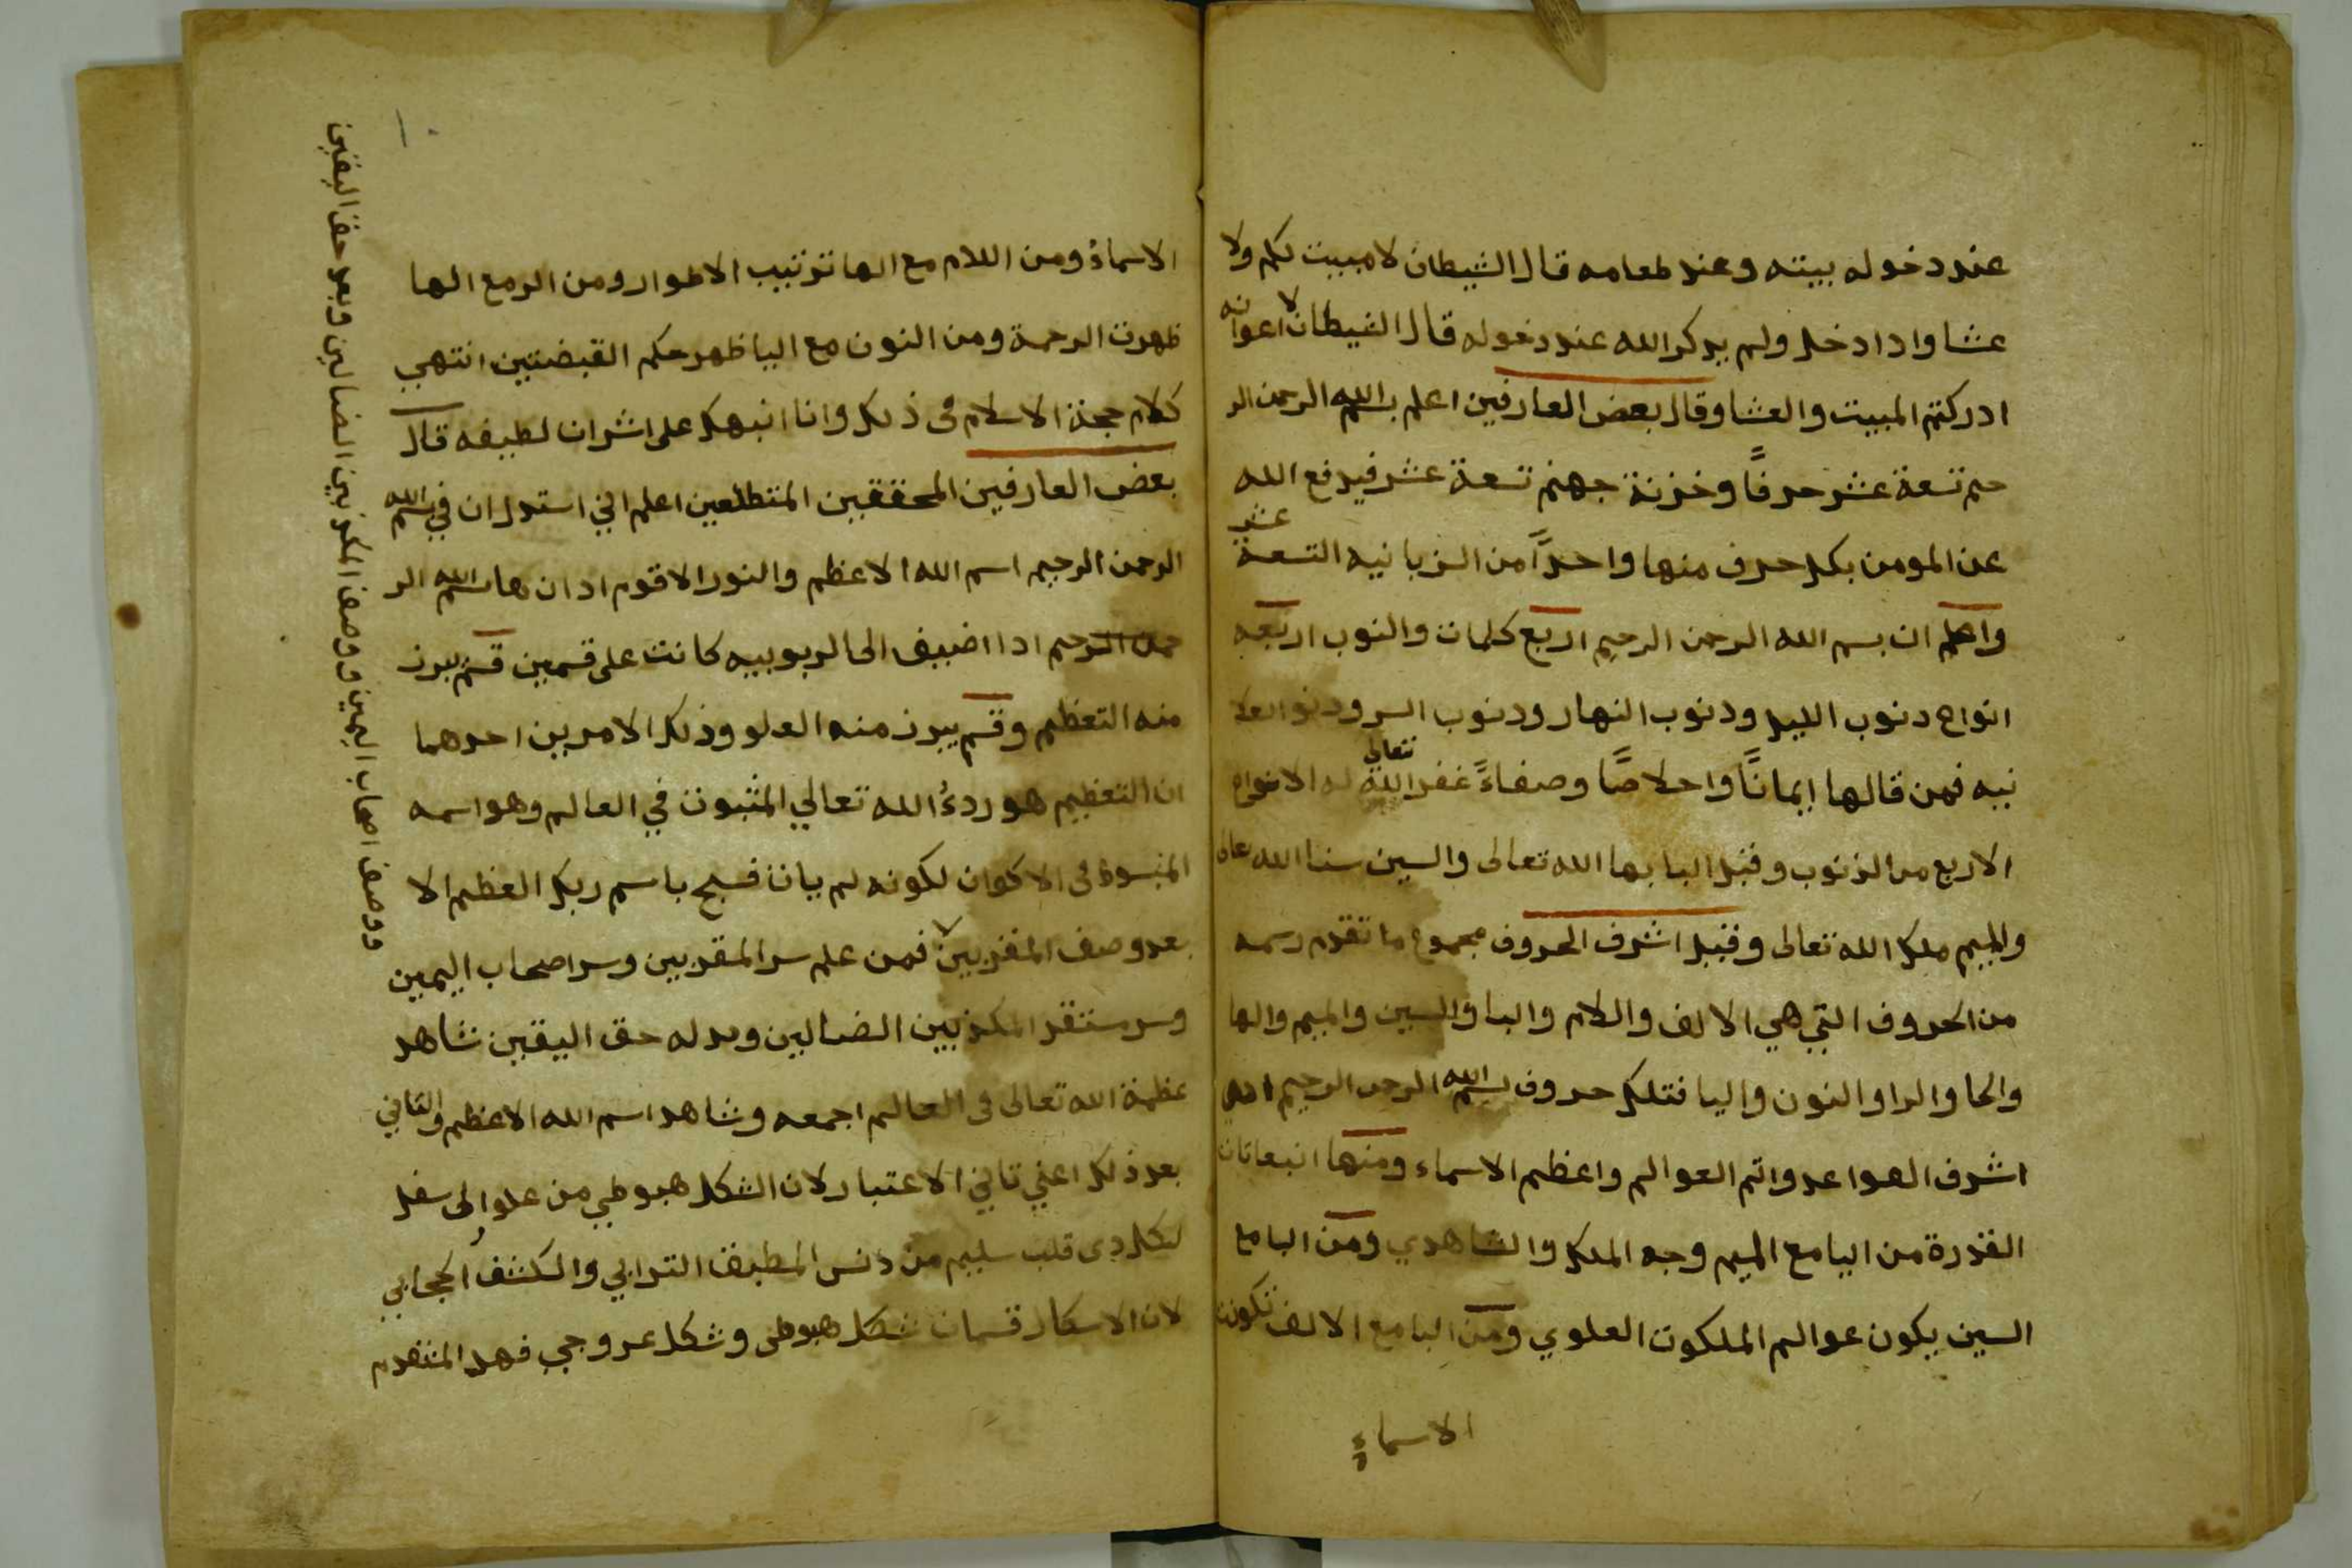 عند دخوله بيته وعند طعامه قال الشيطان لا مبيت لكم ولا
عشا وادا دخل ولم يدكر الله عند دخوله قال الشيطان لا عوانه
ادركتم المبيت والعشا وقال بعض العارفين اعلم بسم الله الرحمن الر
حيم تسعة عشر حرفًا وخزنة جهنم تسعة عشر فيدفع الله
عن المومن بكل حرف منها واحدًا من الزبانيه التسعة عشر
واعلم ان بسم الله الرحمن الرحيم اربع كلمات والنوب اربعه
انواع دنوب الليل ودنوب النهار ودنوب السر ودنوب العلا
نيه فمن قالها ايمانًا واخلاصًا وصفاءً غفر الله تعالي له الانواع
الاربع من الذنوب وقيل البا بها الله تعالى والسين سنا الله تعالى
والميم ملك الله تعالى وقيل اشرف الحروف مجموع ما تقدم رسمه
من الحروف التي هي الالف واللام والبا والسين والميم والها
والحا والرا والنون واليا فتلك حروف بسم الله الرحمن الرحيم
اشرف العواعد واتم العوالم واعظم الاسماء ومنها انبعاتات
القدرة من اليا مع الميم وجه الملك والشاهدي ومن البا مع
السين يكون عوالم الملكوت العلوي ومن البا مع الالف تكونت
الاسماء
١٠
الاسماء ومن اللام مع الها ترتيب الاطوار ومن الر مع الها
ظهرت الرحمة ومن النون مع اليا ظهر حكم القبضتين انتهي
كلام حجة الاسلام في ذلك وانا انبهك على اشرات لطيفه قال
بعض العارفين المحققين المتطلعين اعلم اني استدل ان في بسم الله
الرحمن الرحيم اسم الله الاعظم والنور الاقوم ادان ها بسم الله الر
حمن الرحيم ادا اضيف الى الربوبيه كانت على قسمين قسم يبرز
منه التعظيم وقسم يبرز منه العلو وذلك الامرين احدهما
ان التعظيم هو ردءُ الله تعالي المثبوت في العالم وهو اسمه
في الاكوان لكونه لم يات فسبح باسم ربك العظيم الا
بعد وصف المقربين فمن علم سر المقربين وسر اصحاب اليمين
وسر ستقر المكذبين الضالين وبدله حق اليقين شاهد
عظمة الله تعالى في العالم اجمعه وشاهد اسم الله الاعظم والتاني
بعد ذلك اعني تاني الاعتبار لان الشكل هبوطي من علو الى سفل
لكل دى قلب سليم من دنس المطبق الترابي والكشف الحجابي
لان الاسكار قسمان شكل هبوطى وشكل عروجي فهد المتقدم
ووصف اصحاب اليمين ووصف المكذبين الضالين وبعد حق اليقين